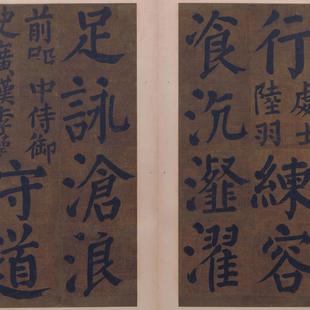 行
處士
陸羽
練容
飡沆瀣濯
足詠滄浪
前殿中侍御
史廣漢李萼
守道